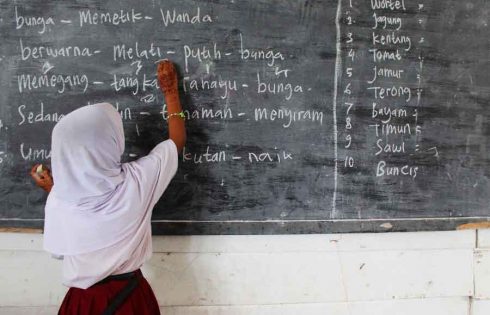 bunga - Memetik - Wanda
berwarna - Melati - putih - bunga
Memegang - tangka - bunga
Sedang - menyiram
- naik
1 Wortel
2 Jagung
3 Kentang
4 Tomat
5 Jamur
6 Terong
7 Bayam
8 Timun
9 Sawi
10 Buncis